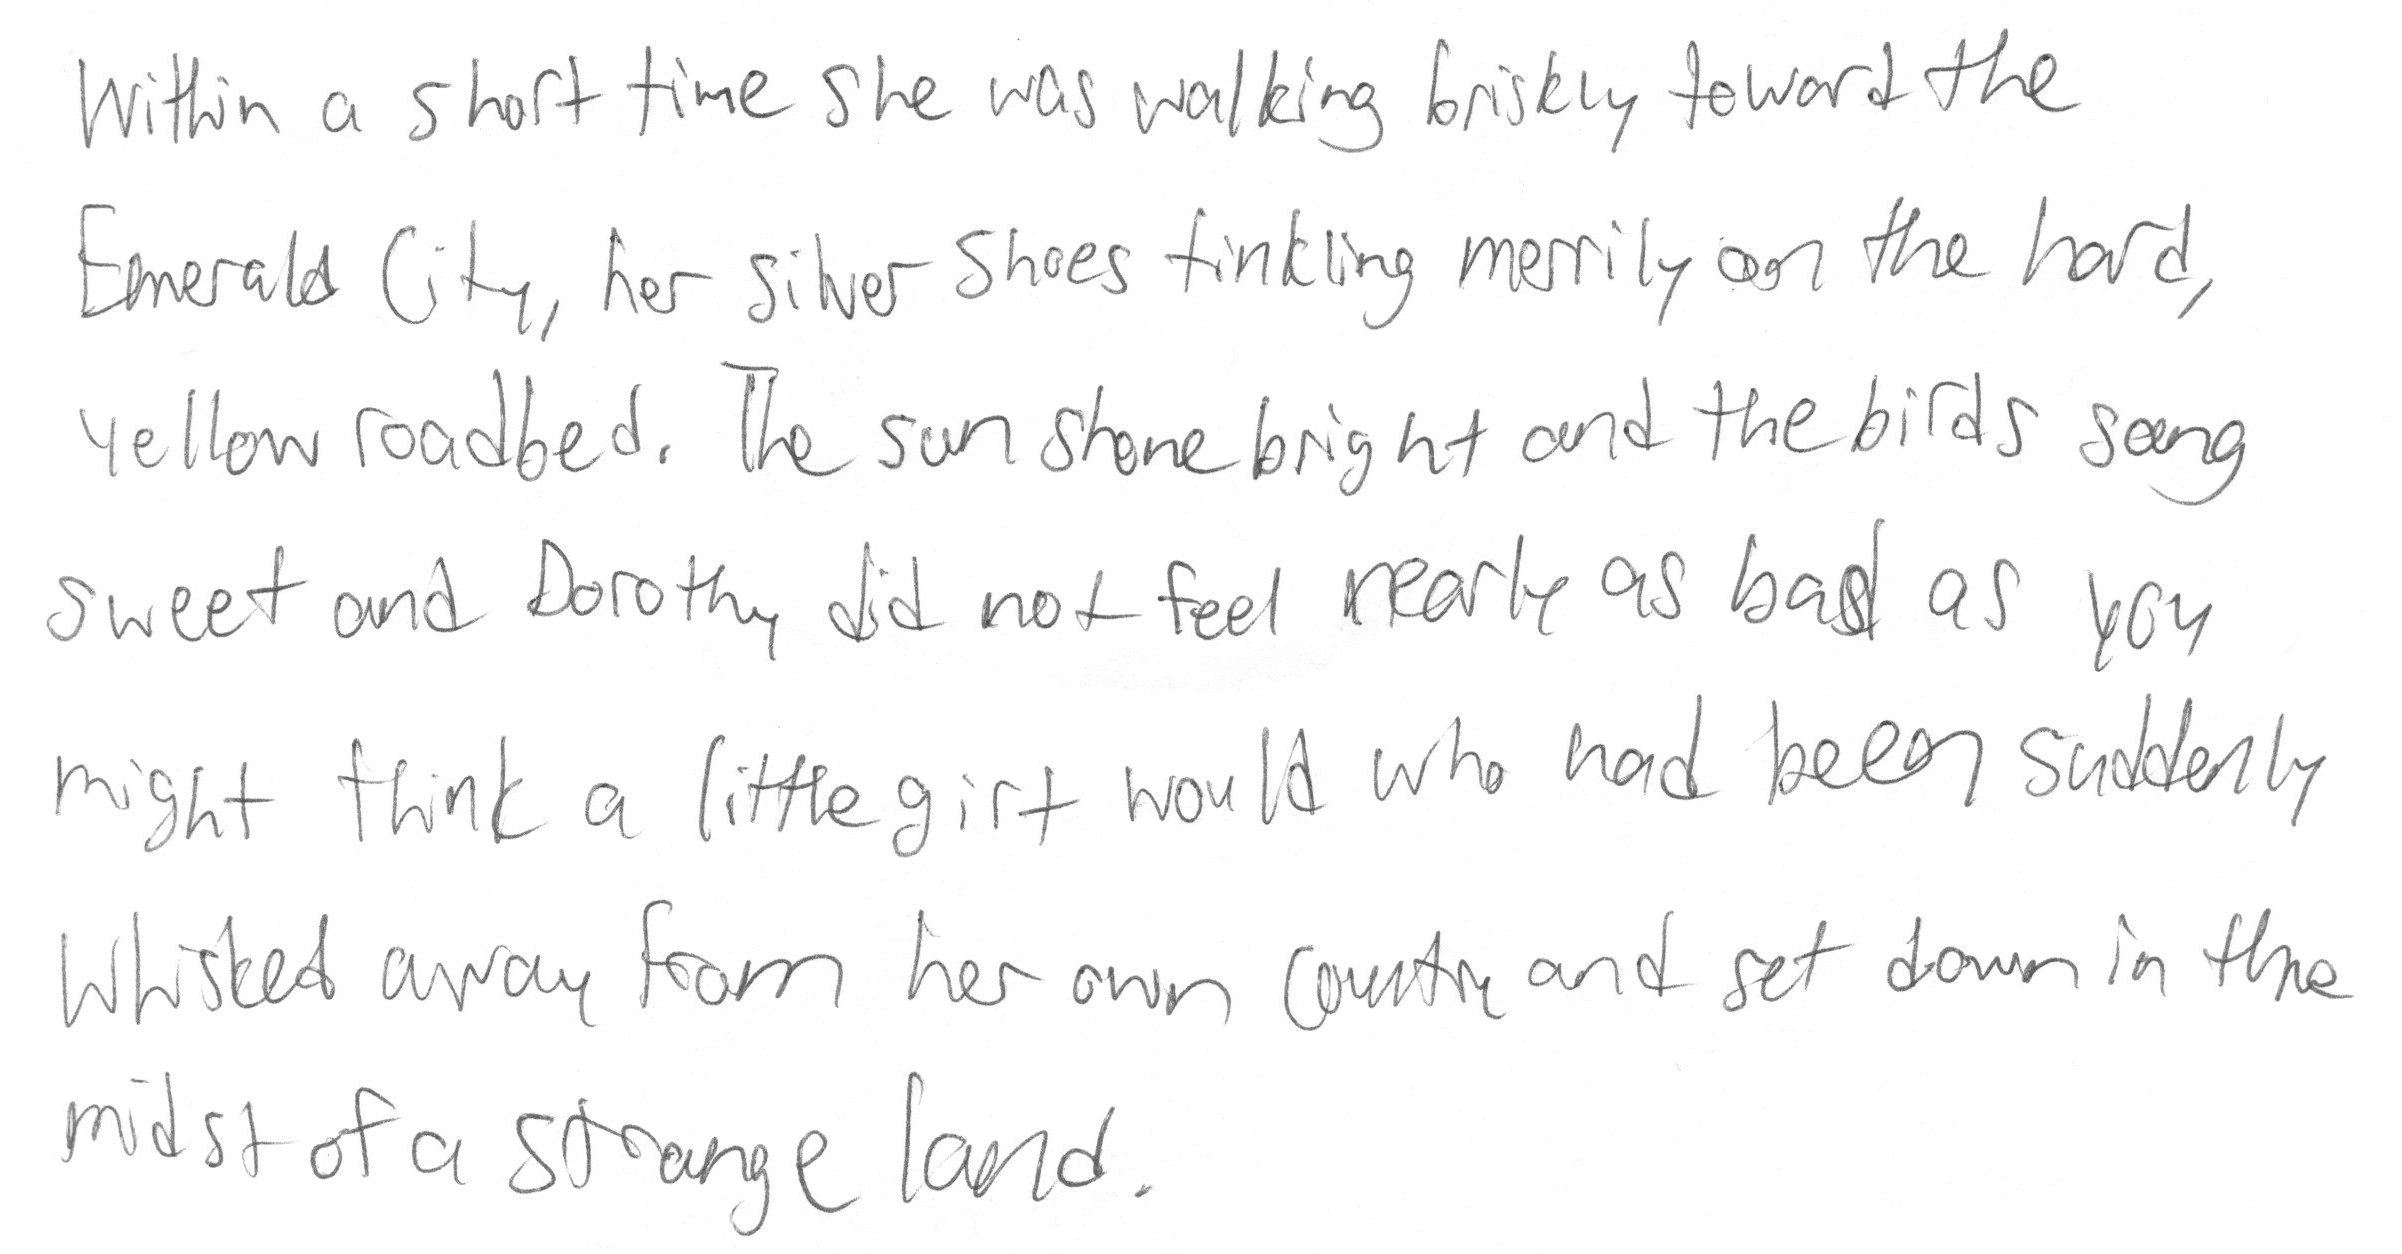 Within a short time she was walking briskly toward the
Emerald City, her silver shoes tinkling merrily on the hard,
yellow roadbed. The sun shone bright and the birds sang
sweet and Dorothy did not feel nearly as bad as you
might think a little girl would who had been suddenly
whisked away from her own country and set down in the
midst of a strange land.